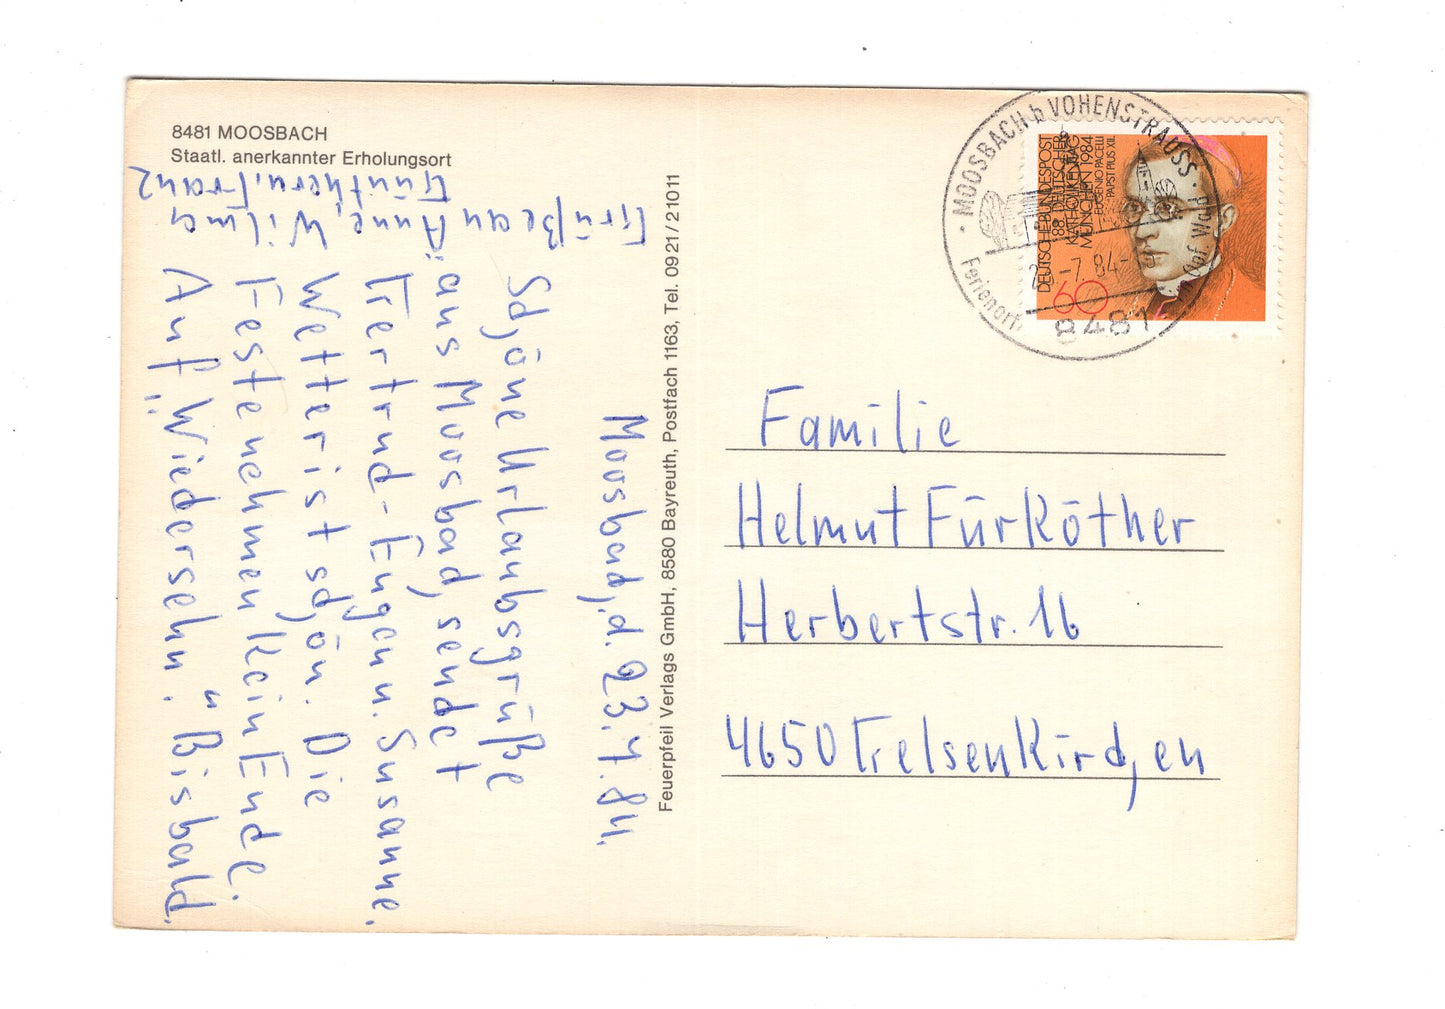 8481 MOOSBACH
Staatl. anerkannter Erholungsort
Moosbach, d. 23.7.84.
Schöne Urlaubsgrüße
aus Moosbach, sendet
Gertrud-Eugen u. Susanne.
Wetter ist schön. Die
Feste nehmen kein Ende.
Auf "Wiedersehn." Bis bald.
Grüße an Anne, Wilma
Günther u. Franz
Feuerpfeil Verlags GmbH, 8580 Bayreuth, Postfach 1163, Tel. 0921/21011
MOOSBACH b VOHENSTRAUSS
Ferienort
-7.84-
8481
DEUTSCHE BUNDESPOST
88. DEUTSCHER
KATHOLIKENTAG
MÜNCHEN 1984
EUGENIO PACELLI
PAPST PIUS XII.
60
Familie
Helmut Fürköther
Herbertstr. 16
4650 Gelsenkirchen